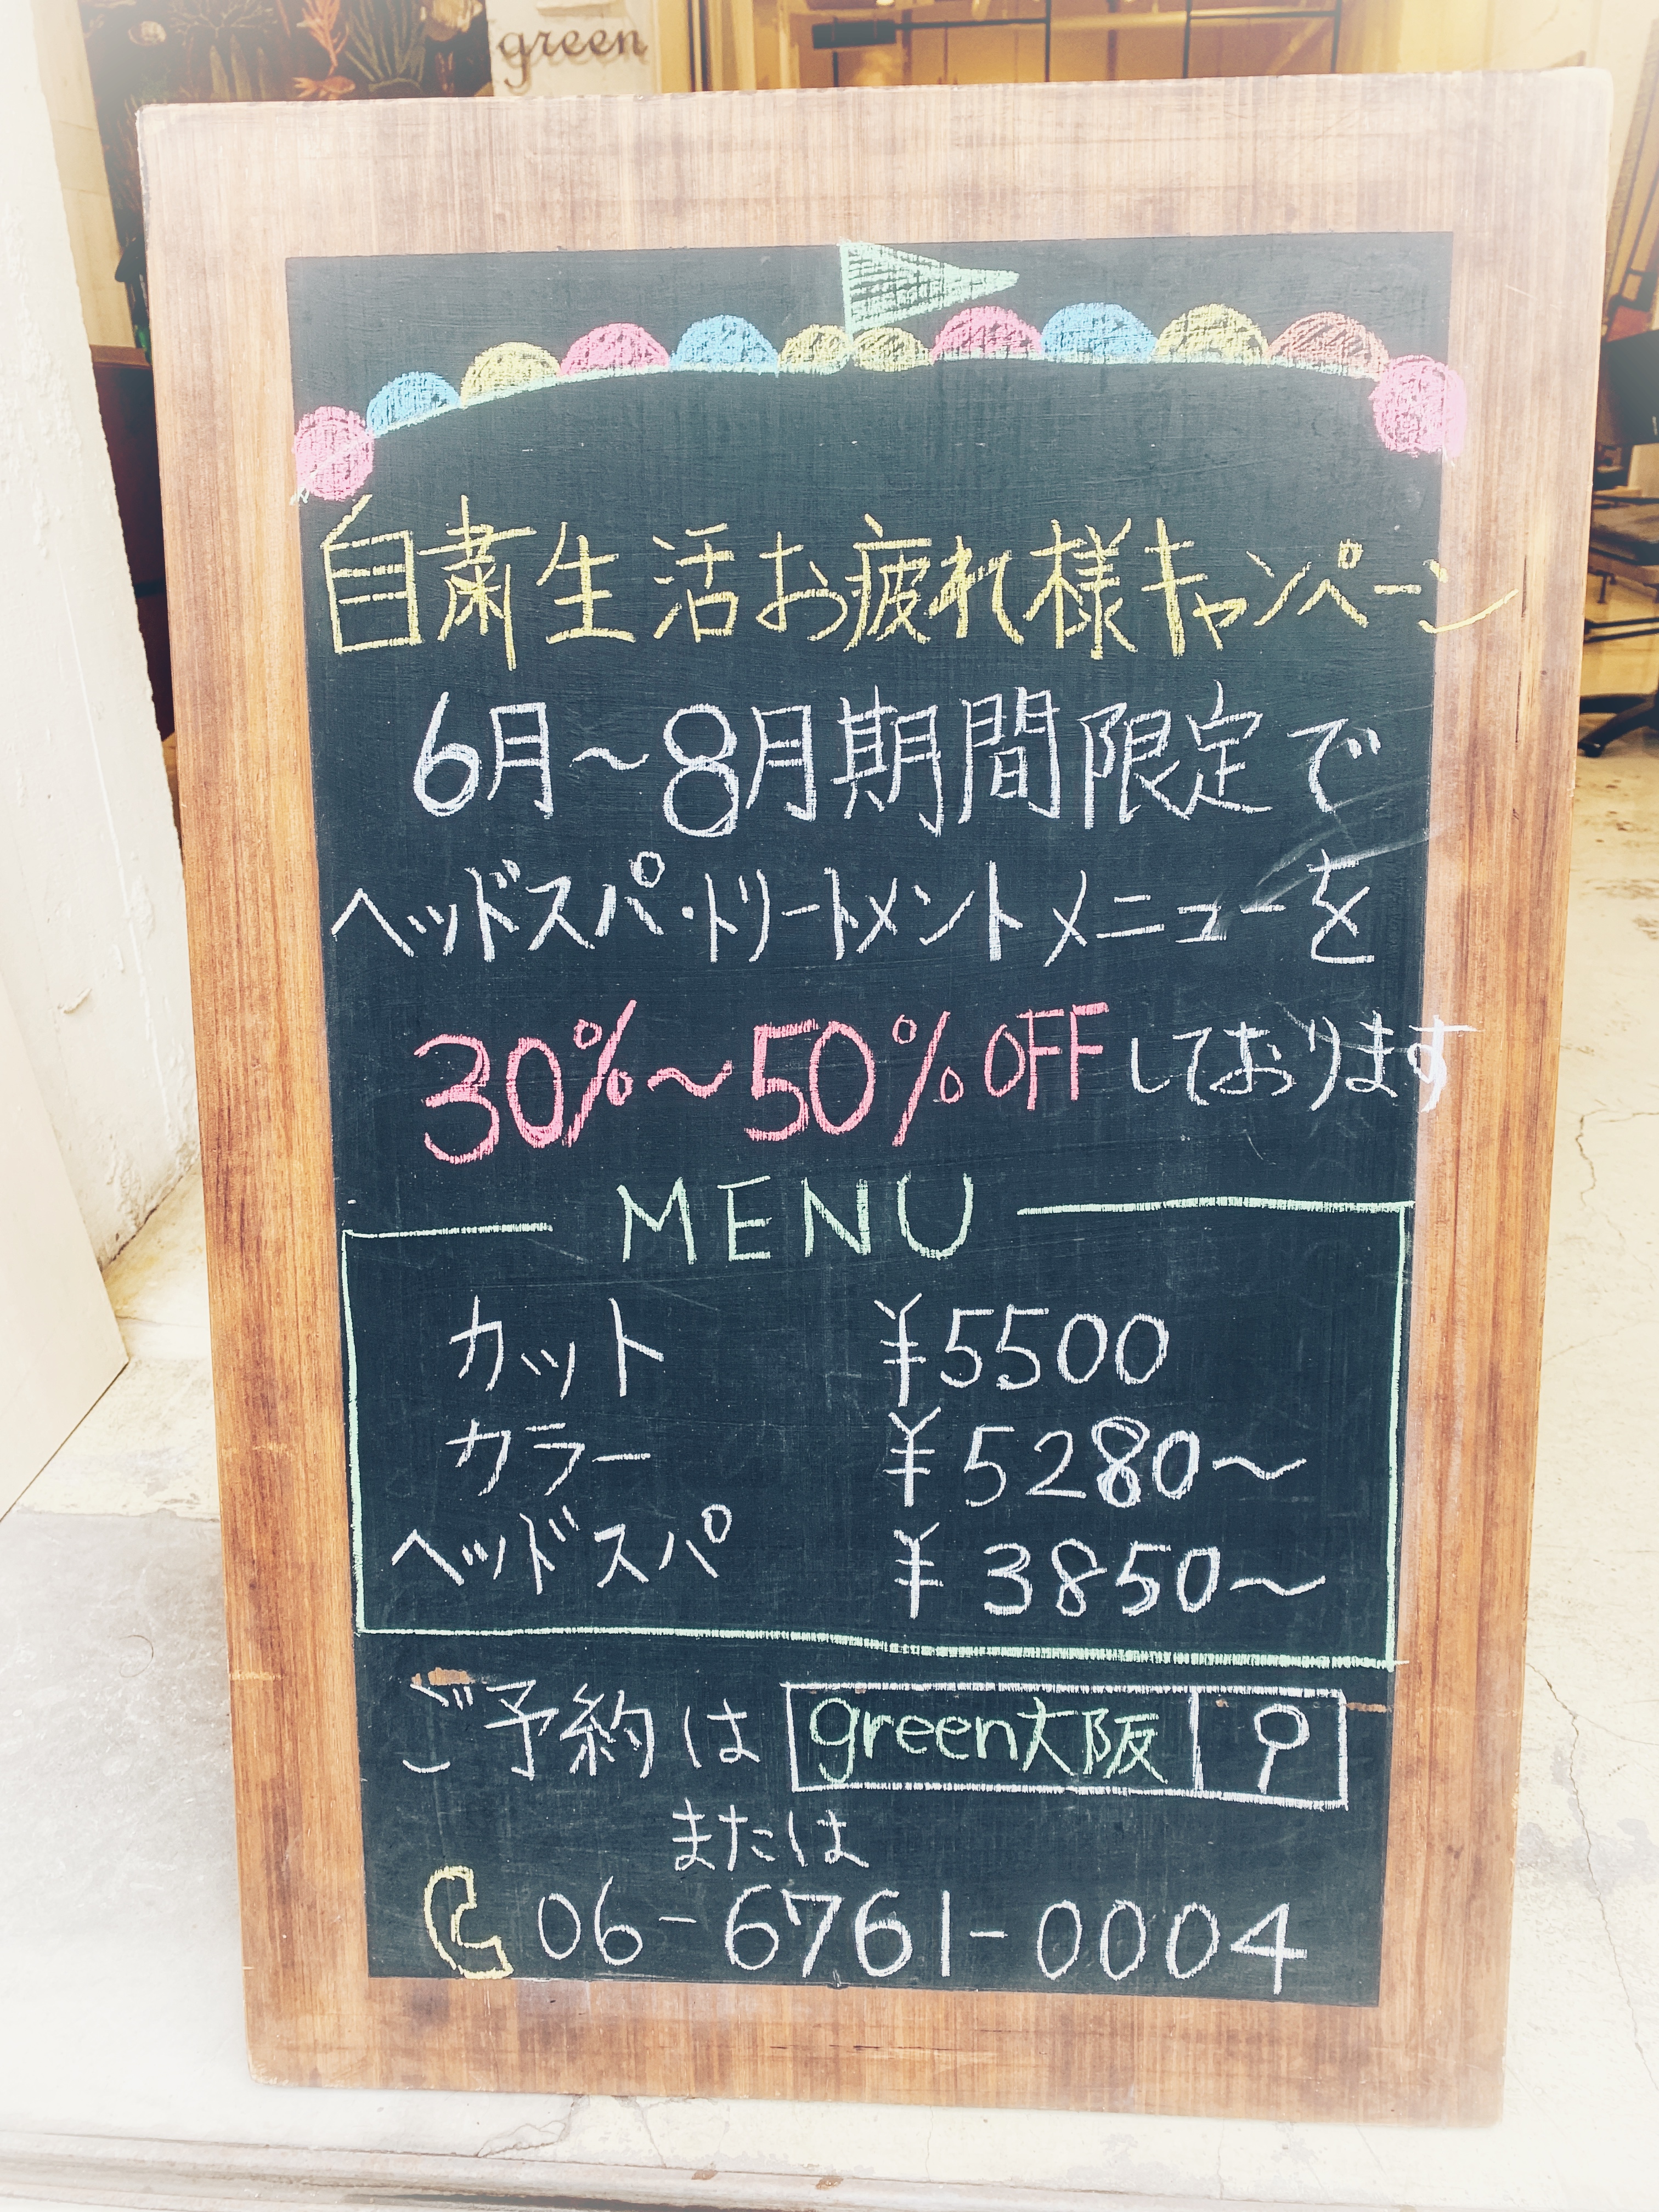 green
自粛生活お疲れ様キャンペーン
6月～8月期間限定で
ヘッドスパ・トリートメントメニューを
30%～50%OFFしております
MENU
カット ¥5500
カラー ¥5280～
ヘッドスパ ¥3850～
ご予約は green大阪
または
06-6761-0004